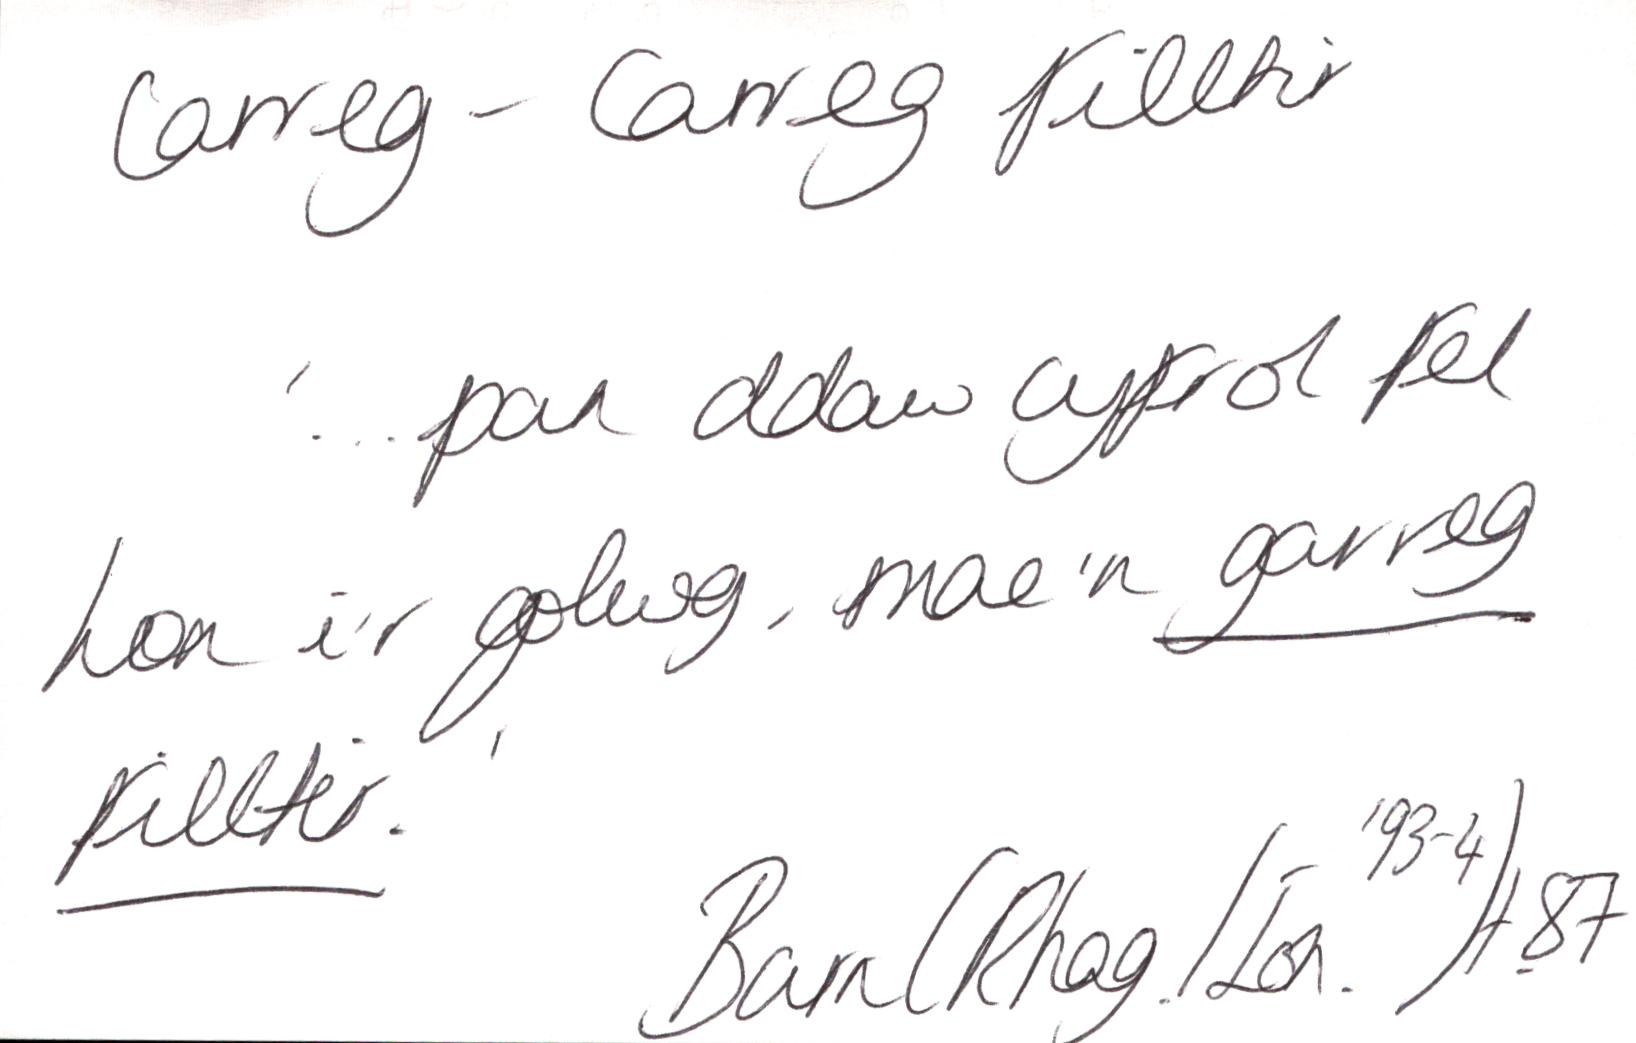 Carreg - Carreg filltir
'... pan ddaw cyfrol fel
hon i'r golwg, mae'n garreg
filltir.'
Barn (Rhag. / Ion. '93-4) t. 87